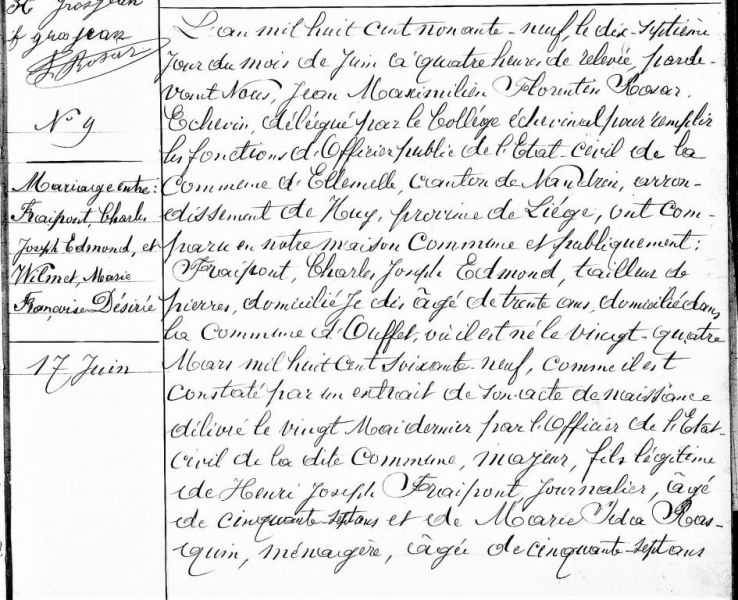 f grosjean
J Rosar
N° 9
Mariage entre:
Fraipont, Charles
Joseph Edmond, et
Wilmet, Marie
Françoise Désirée
17 Juin
L'an mil huit cent nonante-neuf, le dix-septième
jour du mois de Juin à quatre heures de relevée, parde-
vant Nous, Jean Maximilien Florentin Rosar.
Echevin, délégué par le Collège échevinal pour remplir
les fonctions d'Officier public de l'Etat-civil de la
Commune d'Ellemelle, canton de Nandrin, arron-
dissement de Huy, province de Liége, ont com-
paru en notre maison Commune et publiquement:
Fraipont, Charles Joseph Edmond, tailleur de
pierres, domicilié Je dis âgé de trente ans, domicilié dans
la Commune d'Ouffet, où il est né le vingt-quatre
Mars mil huit cent soixante-neuf, comme il est
constaté par un extrait de son acte de naissance
délivré le vingt Mai dernier par l'Officier de l'Etat-
civil de la dite Commune, majeur, fils légitime
de Henri Joseph Fraipont, Journalier, âgé
de cinquante-sept ans et de Marie Ida Ras-
quin, ménagère, âgée de cinquante-sept ans